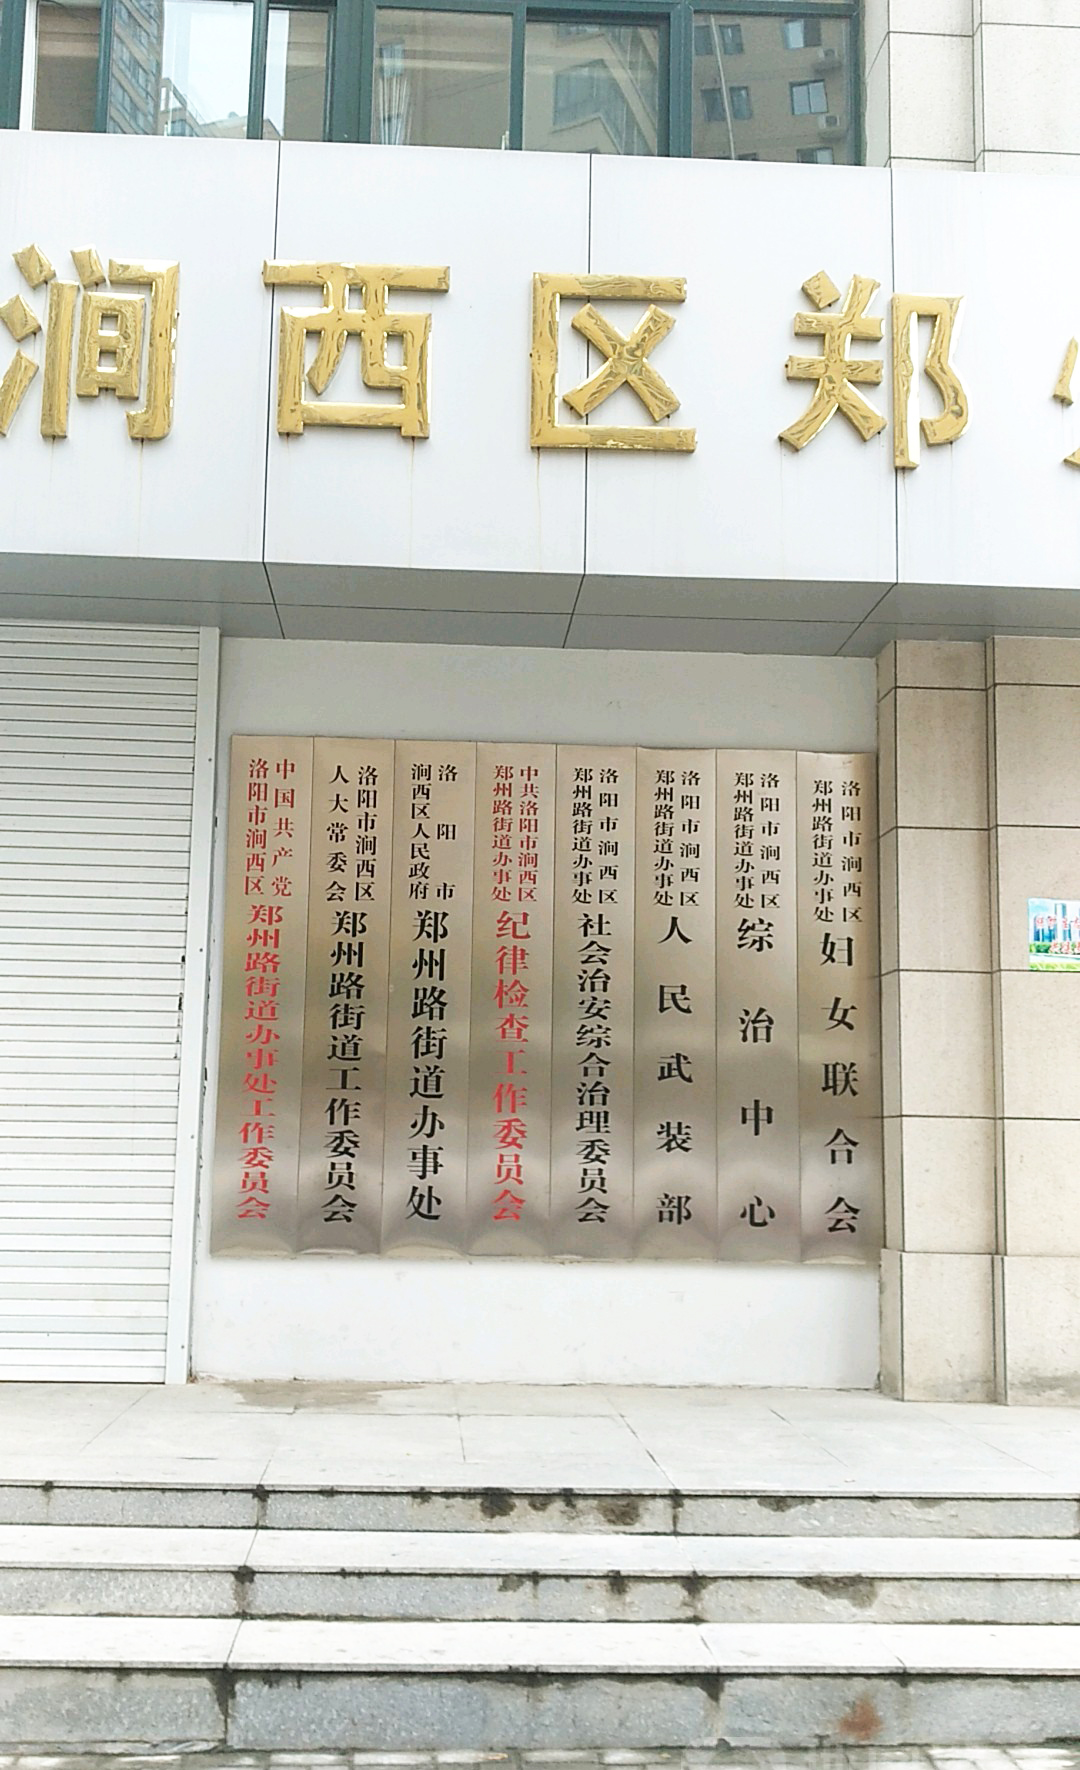 涧西区郑
中国共产党
洛阳市涧西区
郑州路街道办事处工作委员会
洛阳市涧西区
人大常委会
郑州路街道工作委员会
洛阳市
涧西区人民政府
郑州路街道办事处
中共洛阳市涧西区
郑州路街道办事处
纪律检查工作委员会
洛阳市涧西区
郑州路街道办事处
社会治安综合治理委员会
洛阳市涧西区
郑州路街道办事处
人民武装部
洛阳市涧西区
郑州路街道办事处
综治中心
洛阳市涧西区
郑州路街道办事处
妇女联合会